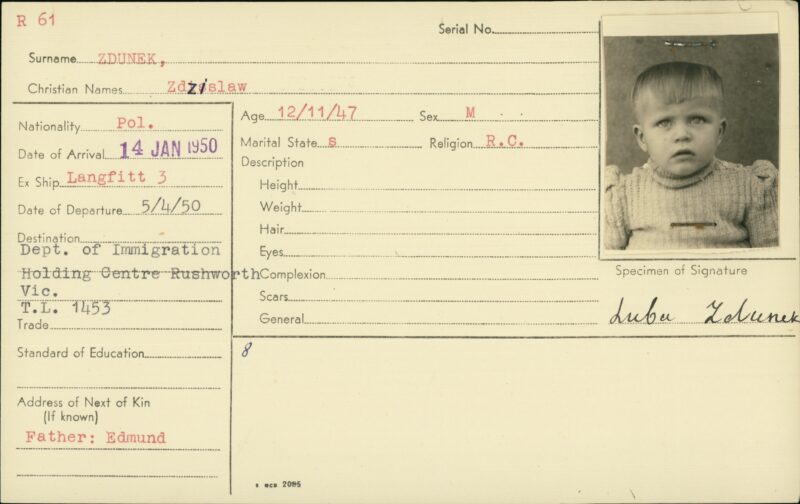 R 61
Serial No.
Surname ZDUNEK,
Christian Names Zdzislaw
Nationality Pol.
Date of Arrival 14 JAN 1950
Ex Ship Langfitt 3
Date of Departure 5/4/50
Destination
Dept. of Immigration
Holding Centre Rushworth
Vic.
T.L. 1453
Trade
Standard of Education
Address of Next of Kin
(If known)
Father: Edmund
Age 12/11/47 Sex M
Marital State s Religion R.C.
Description
Height
Weight
Hair
Eyes
Complexion
Scars
General
8
Specimen of Signature
Luba Zdunek
2085